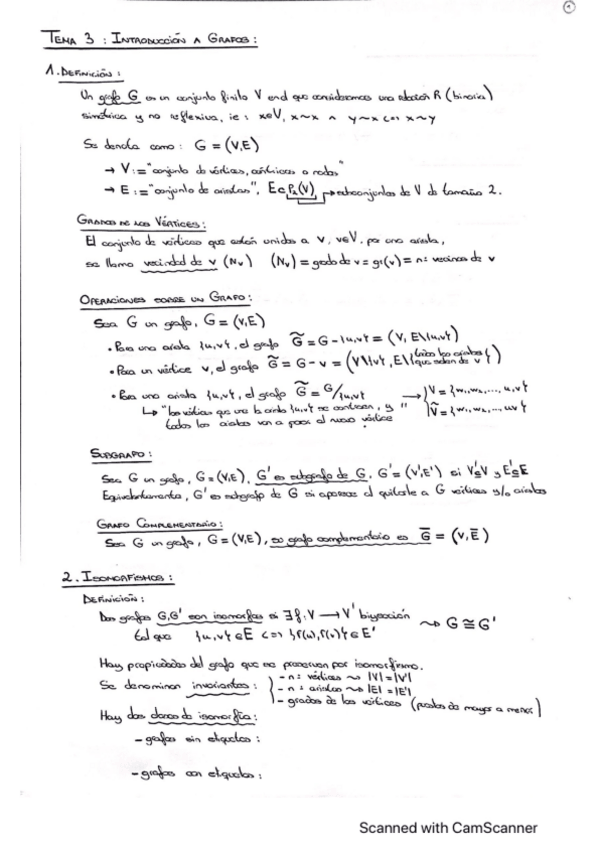 1
TEMA 3 : INTRODUCCIÓN A GRAFOS :
1. DEFINICIÓN :
Un grafo G es un conjunto finito V en el que consideramos una relación R (binaria)
simétrica y no reflexiva, ie : x∈V, x~x ∧ y~x <=> x~y
Se denota como : G = (V,E)
→ V := "conjunto de vértices, o nodos"
→ E := "conjunto de aristas", E⊂P₂(V) → subconjuntos de V de tamaño 2.
GRADOS DE LOS VÉRTICES :
El conjunto de vértices que están unidos a v, v∈V, por una arista,
se llama vecindad de v (Nv) (Nv) = grado de v = gr(v) = nº vecinos de v
OPERACIONES SOBRE UN GRAFO :
Sea G un grafo, G = (V,E)
• Para una arista {u,v}, el grafo G̃ = G - {u,v} = (V, E\{u,v})
• Para un vértice v, el grafo G̃ = G - v = (V\{v}, E\{todas las aristas que salen de v})
• Para una arista {u,v}, el grafo G̃ = G/{u,v} → V = {w₁,w₂,..., u,v}
Ṽ = {w₁,w₂,..., uv}
↳ "los vértices que une la arista {u,v} se contraen, y
todas las aristas van a parar al nuevo vértice"
SUBGRAFO :
Sea G un grafo, G = (V,E), G' es subgrafo de G, G' = (V',E') si V'⊆V y E'⊆E
Equivalentemente, G' es subgrafo de G si aparece al quitarle a G vértices y/o aristas
GRAFO COMPLEMENTARIO :
Sea G un grafo, G = (V,E), su grafo complementario es G̅ = (V, E̅)
2. ISOMORFISMOS :
DEFINICIÓN :
Dos grafos G,G' son isomorfos si ∃ f: V → V' biyección
tal que {u,v}∈E <=> {f(u),f(v)}∈E' ⇝ G ≅ G'
Hay propiedades del grafo que se preservan por isomorfismo.
Se denominan invariantes : - nº vértices ⇝ |V| = |V'|
- nº aristas ⇝ |E| = |E'|
- grados de los vértices (puestos de mayor a menor)
Hay dos clases de isomorfía :
- grafos sin etiquetas :
- grafos con etiquetas :
Scanned with CamScanner